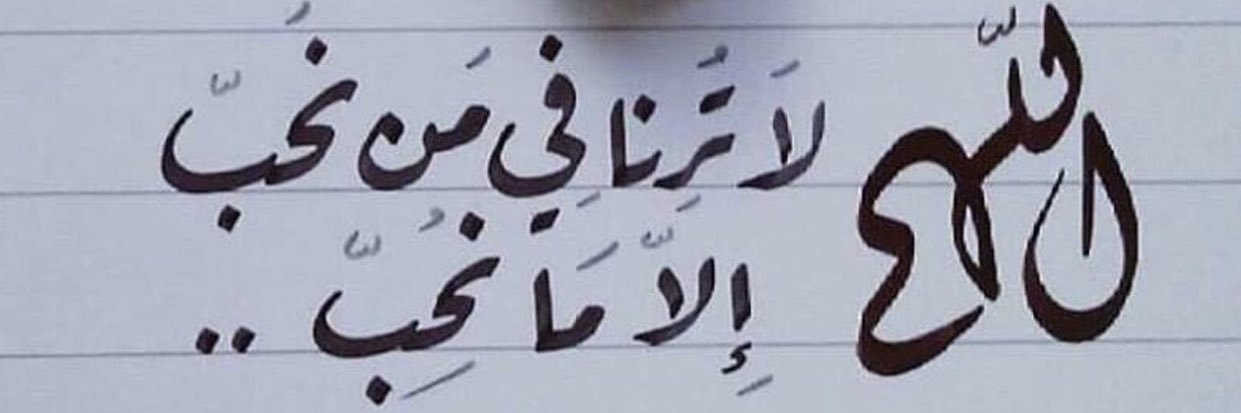 اللّهم لَا تُرِنا فِي مَن نُحبّ
إِلّا مَا نُحِبّ ..